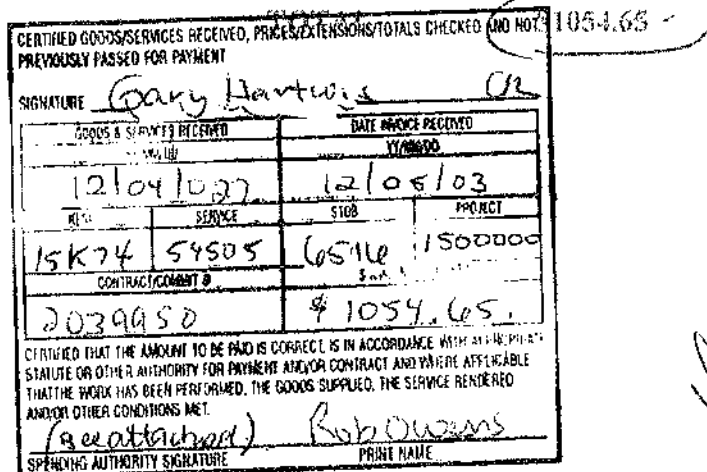 CERTIFIED GOODS/SERVICES RECEIVED, PRICES/EXTENSIONS/TOTALS CHECKED AND NOT
1054.65
PREVIOUSLY PASSED FOR PAYMENT
SIGNATURE Gary Hartwig
GOODS & SERVICES RECEIVED DATE INVOICE RECEIVED
YY/MM/DD
12/04/027 12/05/03
SERVICE STOB PROJECT
15K74 54505 6516 1500000
CONTRACT/COMMIT #
2039950 $ 1054.65.
CERTIFIED THAT THE AMOUNT TO BE PAID IS CORRECT, IS IN ACCORDANCE WITH APPROPRIATE
STATUTE OR OTHER AUTHORITY FOR PAYMENT AND/OR CONTRACT AND WHERE APPLICABLE
THAT THE WORK HAS BEEN PERFORMED, THE GOODS SUPPLIED, THE SERVICE RENDERED
AND/OR OTHER CONDITIONS MET.
(see attached) Rob Owens
SPENDING AUTHORITY SIGNATURE PRINT NAME